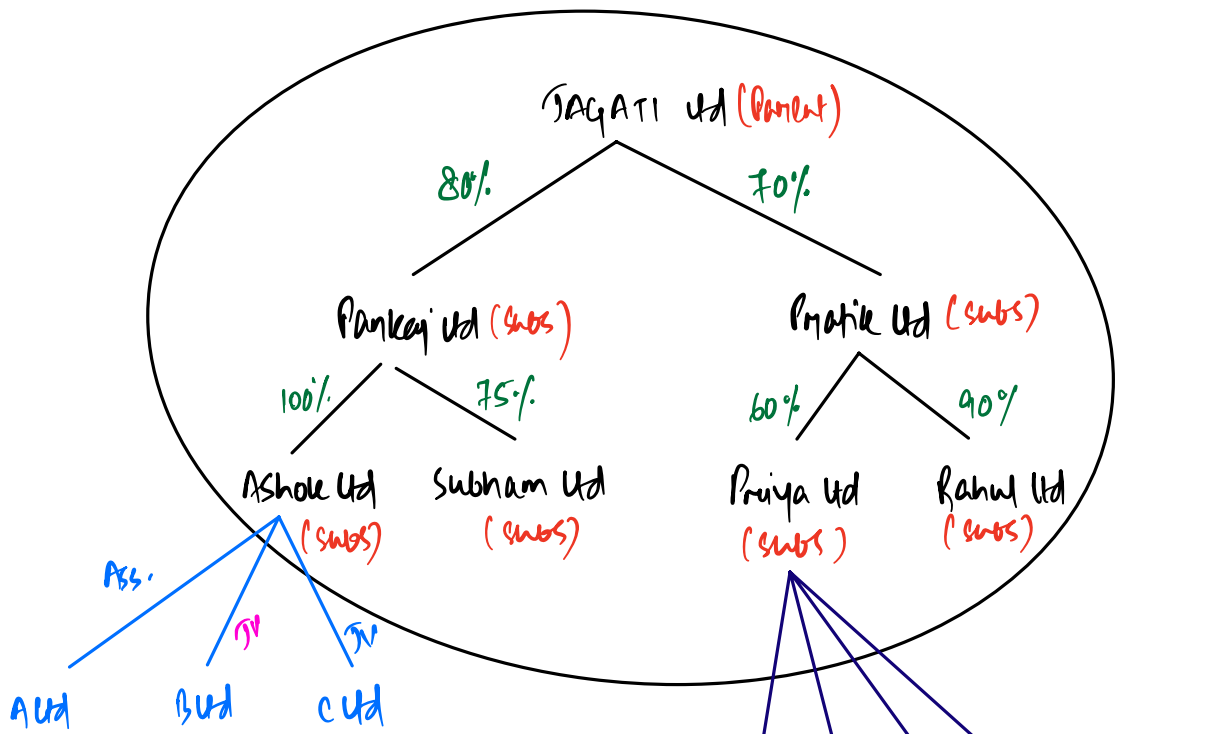 JAGATI Ltd (Parent)
80% 70%
Pankaj Ltd (subs) Pratik Ltd (subs)
100% 75% 60% 90%
Ashok Ltd Subham Ltd Priya Ltd Rahul Ltd
(subs) (subs) (subs) (subs)
Ass. JV JV
A Ltd B Ltd C Ltd